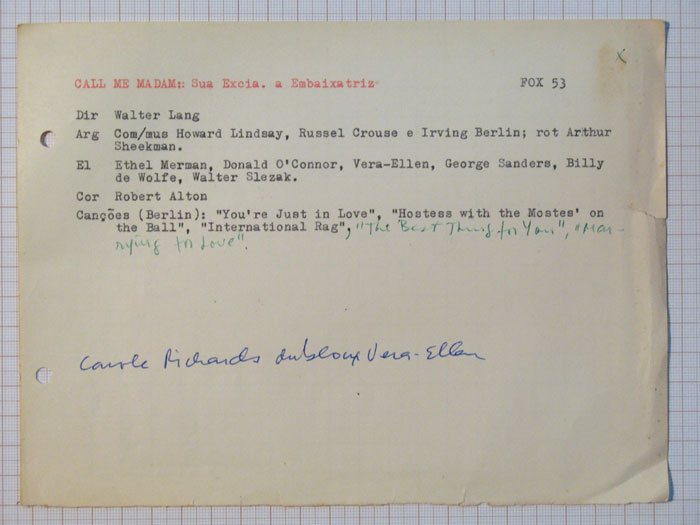 x
CALL ME MADAM: Sua Excia. a Embaixatriz FOX 53
Dir Walter Lang
Arg Com/mus Howard Lindsay, Russel Crouse e Irving Berlin; rot Arthur
Sheekman.
El Ethel Merman, Donald O'Connor, Vera-Ellen, George Sanders, Billy
de Wolfe, Walter Slezak.
Cor Robert Alton
Canções (Berlin): "You're Just in Love", "Hostess with the Mostes' on
the Ball", "International Rag", "The Best Thing for You", "Mar-
rying for Love".
Carole Richards dublour Vera-Ellen